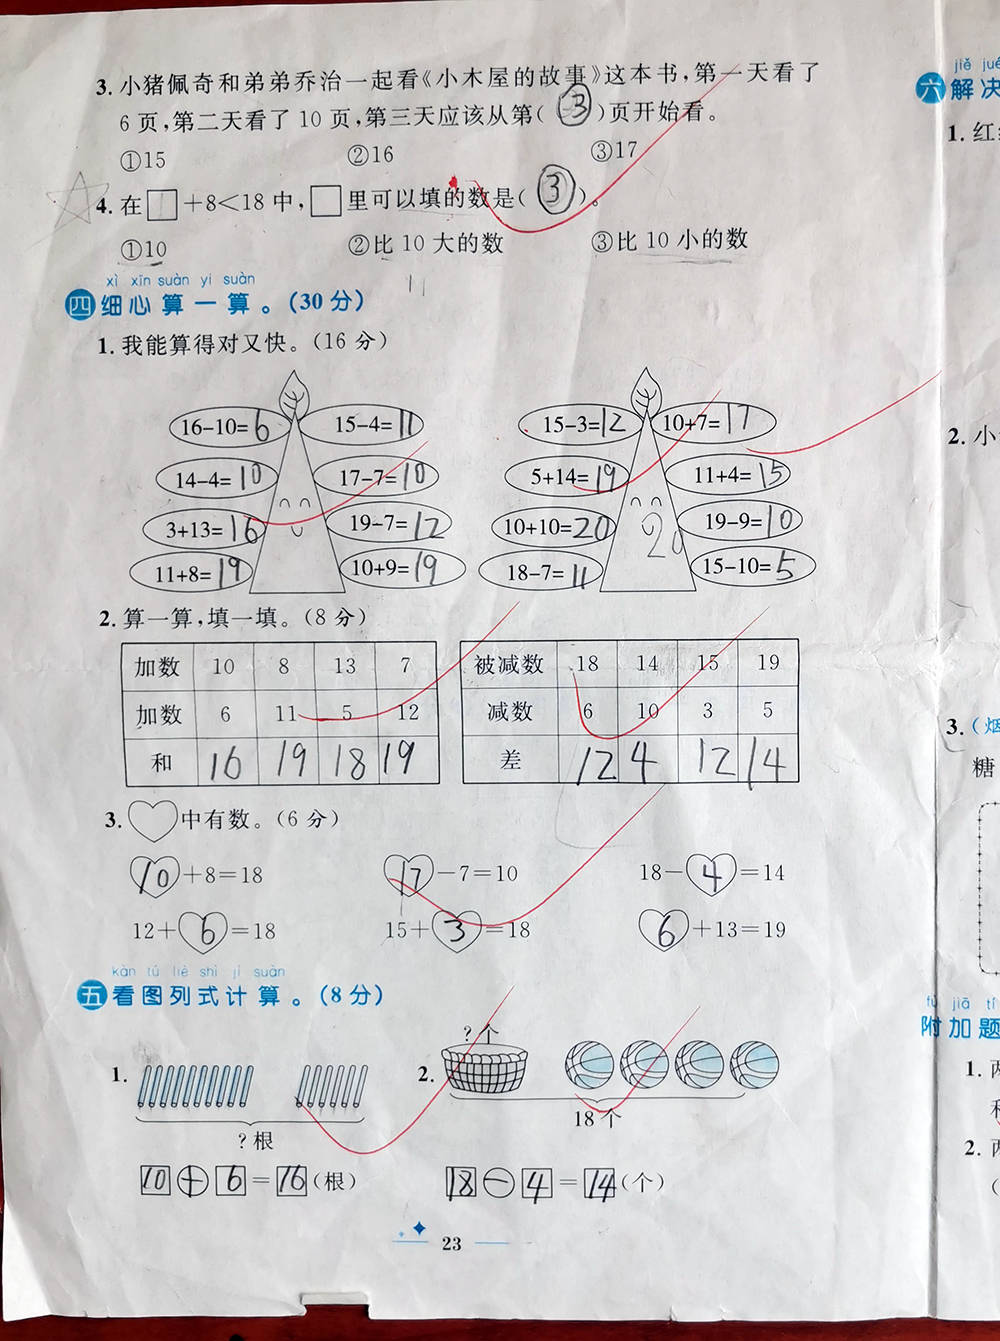 3. 小猪佩奇和弟弟乔治一起看《小木屋的故事》这本书，第一天看了
6页，第二天看了10页，第三天应该从第(③)页开始看。
①15 ②16 ③17
4. 在□+8<18中，□里可以填的数是(③)。
①10 ②比10大的数 ③比10小的数
11
xì xīn suàn yi suàn
四 细心算一算。(30分)
1. 我能算得对又快。(16分)
16-10=6 15-4=11 15-3=12 10+7=17
14-4=10 17-7=10 5+14=19 11+4=15
3+13=16 19-7=12 10+10=20 20 19-9=10
11+8=19 10+9=19 18-7=11 15-10=5
2. 算一算，填一填。(8分)
加数 10 8 13 7 被减数 18 14 15 19
加数 6 11 5 12 减数 6 10 3 5
和 16 19 18 19 差 12 4 12 14
3. ♡中有数。(6分)
10+8=18 17-7=10 18-4=14
12+6=18 15+3=18 6+13=19
kàn tú liè shì jì suàn
五 看图列式计算。(8分)
1. ?根
10+6=16(根)
2. ?个
18个
18-4=14(个)
23
jiě jué
六 解决
1. 红
2. 小
3. (烟
糖
fù jiā tí
附加题
1. 两
2. 两
(